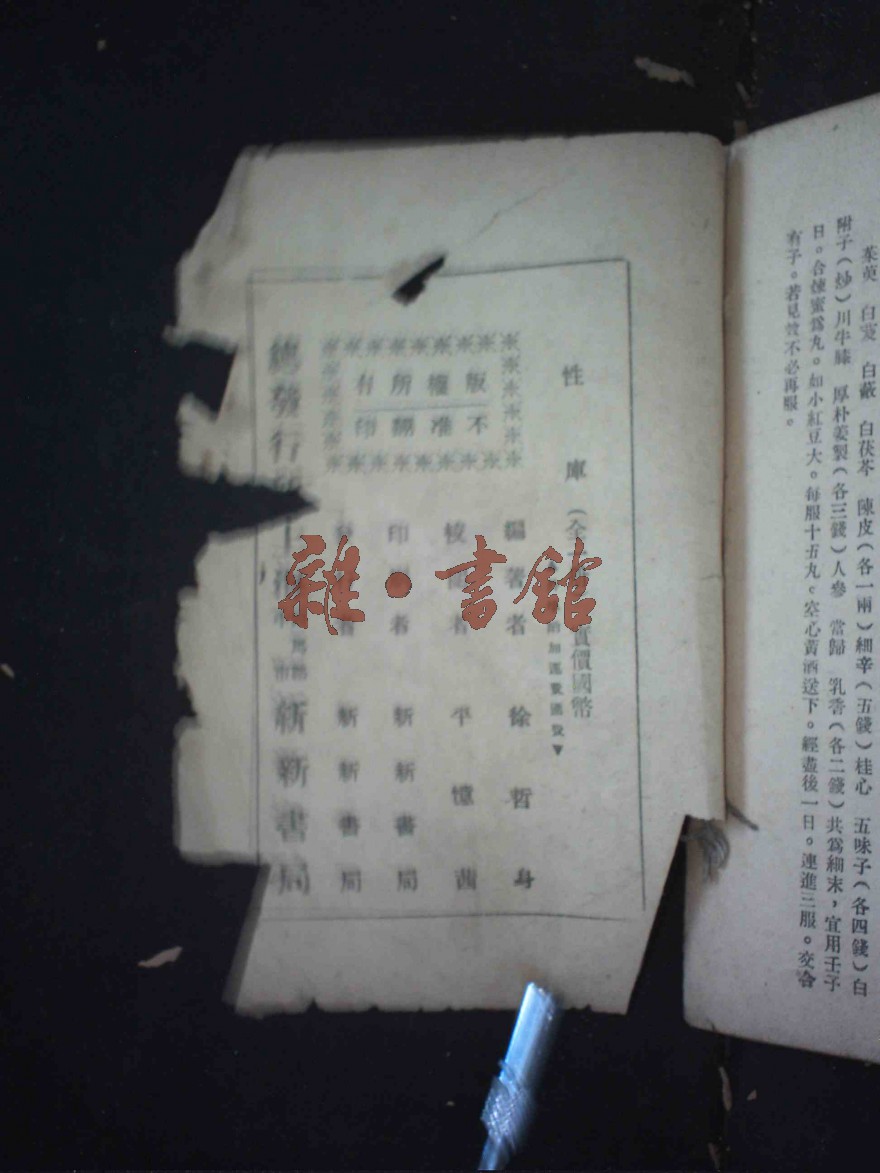 茱萸　白芨　白蘞　白茯苓　陳皮（各一兩）細辛（五錢）桂心　五味子（各四錢）白
附子（炒）川牛膝　厚朴姜製（各三錢）人參　當歸　乳香（各二錢）共爲細末，宜用壬子
日。合煉蜜爲丸。如小紅豆大。每服十五丸。空心黃酒送下。經盡後一日。連進三服。交合
有子。若見效不必再服。
性庫（全
實價國幣
加運費匯費▼
版權所有
不准翻印
編著者　徐哲身
校　者　平憶茜
印　者　新新書局
者　新新書局
總發行　上海　新新書局
雜·書館